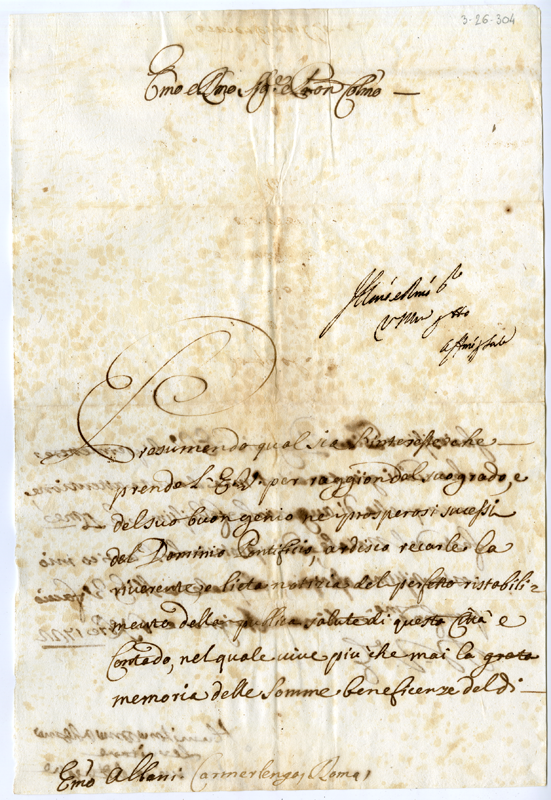 3-26-304
Emo e Rmo Sig.re e Pron Colmo
Presumendo qual sia l'interesse che
prende l'E.V. per raggion dal suo grado, e
del suo buon genio ne prosperosi sucessi
del Dominio Pontificio, ardisco recarle la
riverente e lieta notizia del perfetto ristabili-
mento della publica salute di questa Città e
Contado, nel quale vive più che mai la grata
memoria delle somme beneficenze del di-
Emo Albani Camerlengo, Roma